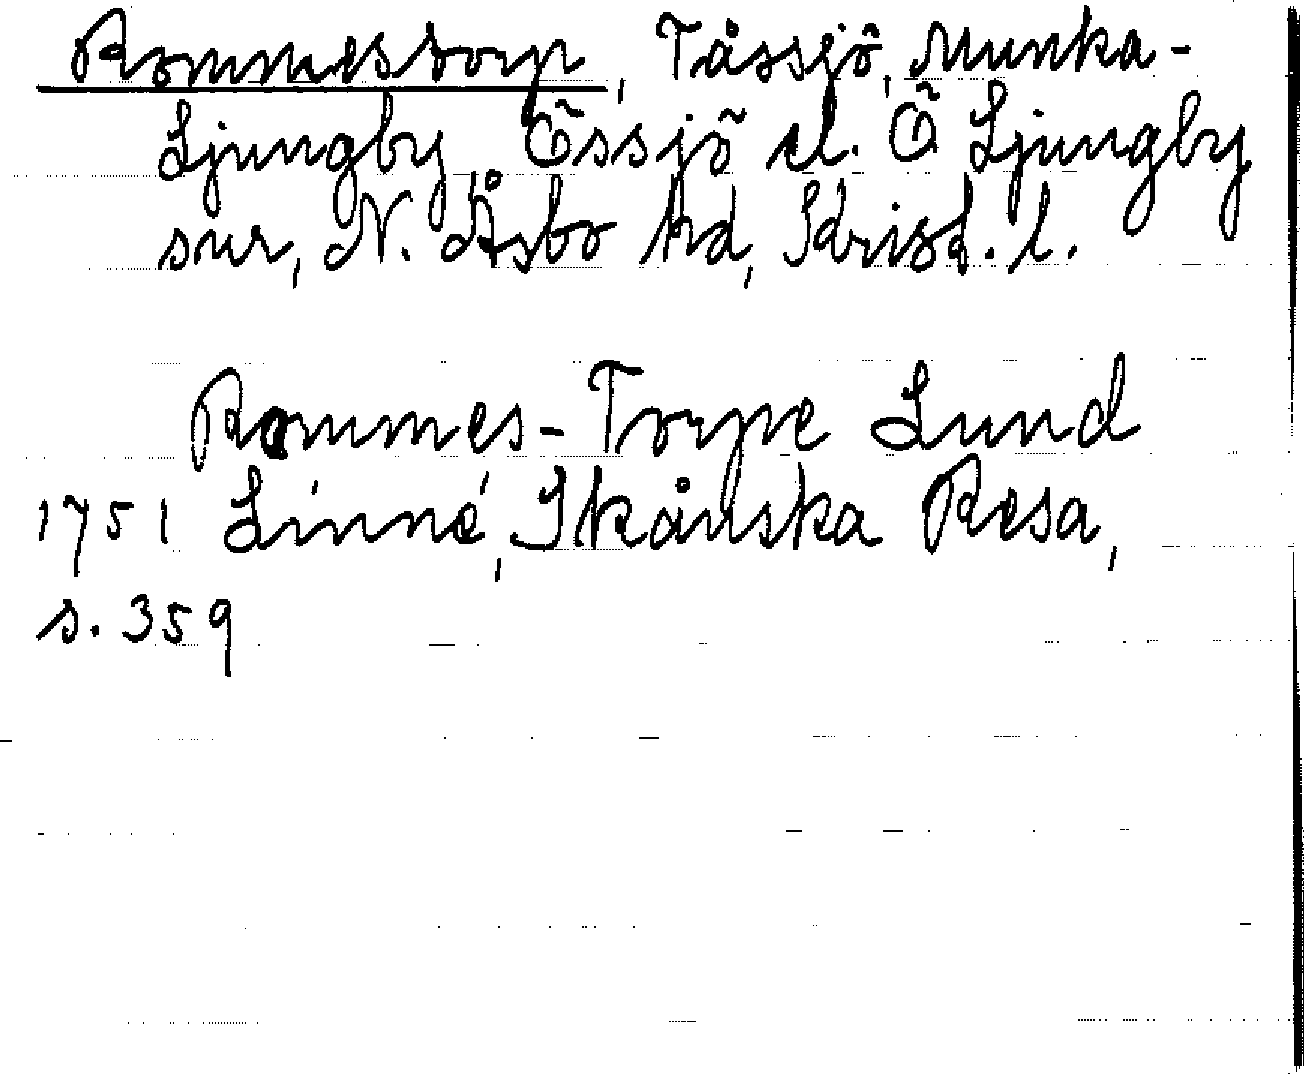 Rommestorp, Tåssjö, Munka-
Ljungby, Össjö el. Ö Ljungby
snr, N. Åsbo hd, Krist. l.
Rommes-Torpe Lund
1751 Linné, Skånska Resa,
s. 359